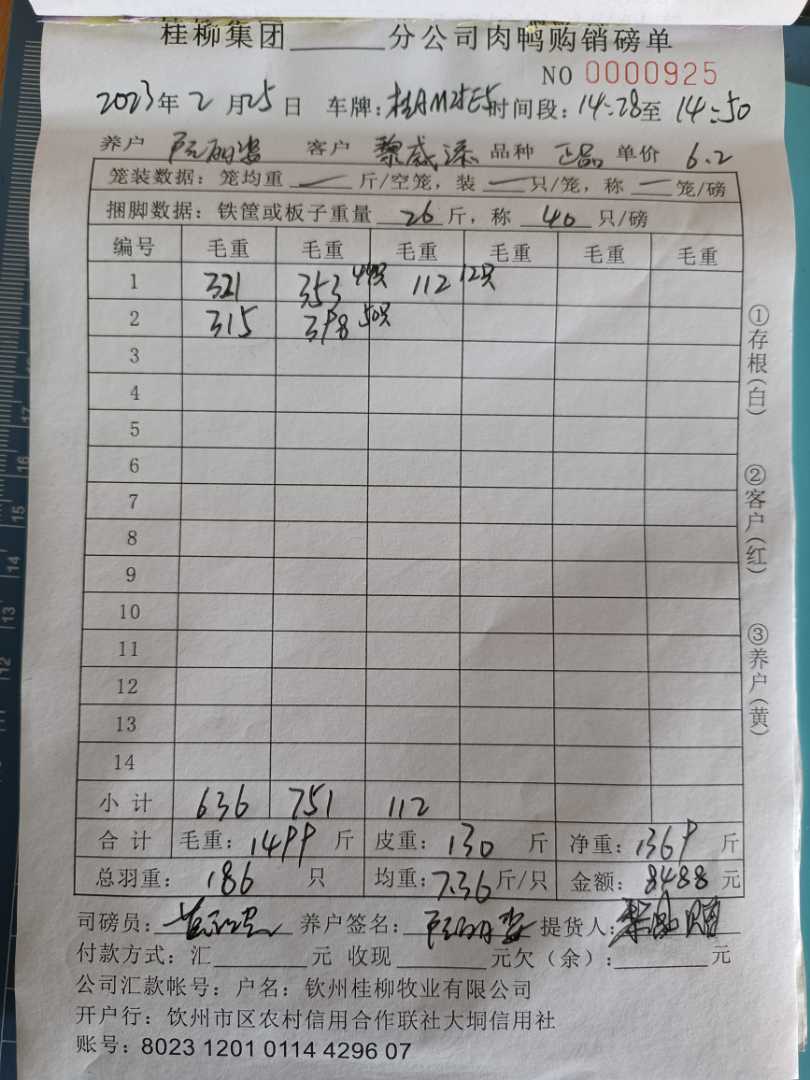 桂柳集团______分公司肉鸭购销磅单
NO 0000925
2023年2月25日 车牌: 时间段：14:28至14:50
养户 客户 黎威添 品种 正品 单价 6.2
笼装数据：笼均重 — 斤/空笼，装 — 只/笼，称 — 笼/磅
捆脚数据：铁筐或板子重量 26 斤，称 40 只/磅
编号 毛重 毛重 毛重 毛重 毛重 毛重
1 321 353 44只 112 12只
2 315 398 50只
3
4
5
6
7
8
9
10
11
12
13
14
小计 636 751 112
合计 毛重：1499 斤 皮重：130 斤 净重：1369 斤
总羽重：186 只 均重：7.36斤/只 金额：8488元
司磅员: 养户签名: 提货人:
付款方式：汇______元 收现______元欠（余）:______元
公司汇款帐号：户名：钦州桂柳牧业有限公司
开户行：钦州市区农村信用合作联社大垌信用社
账号：8023 1201 0114 4296 07
①存根(白)
②客户(红)
③养户(黄)